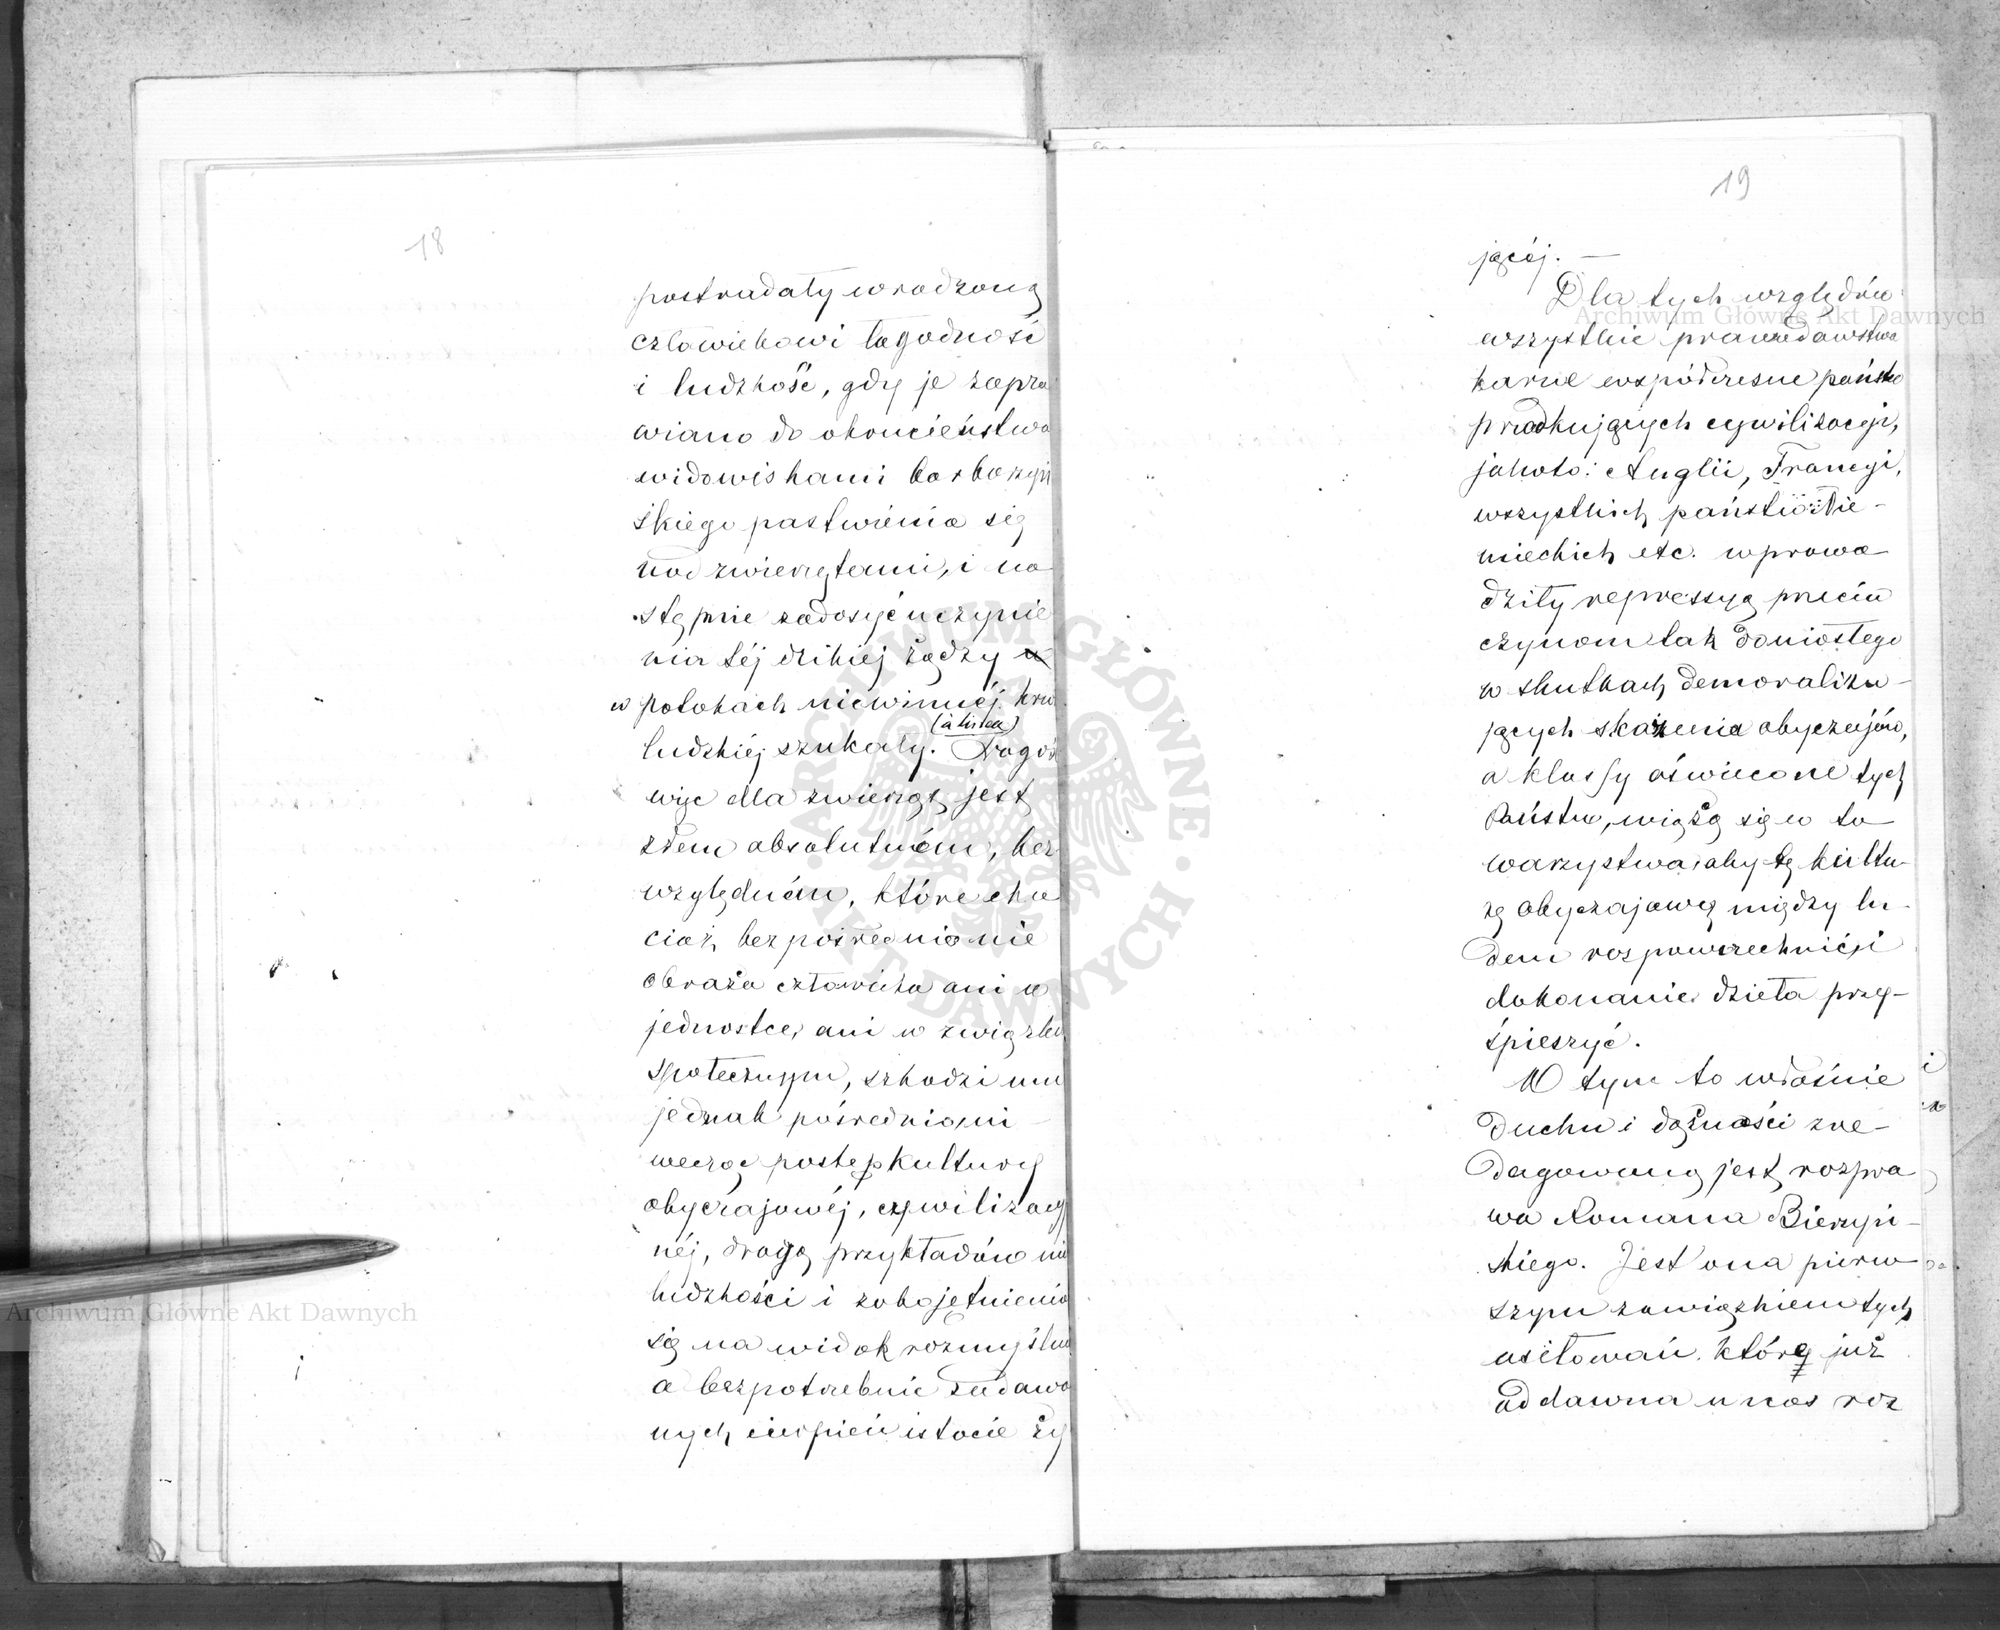 18
postradały wrodzoną
człowiekowi łagodność
i ludzkość, gdy je zapra
wiano do okrucieństwa
widowiskami barbarzyń
skiego pastwienia się
nad zwierzętami, i na
stępnie zadosyćuczynie
nia téj dzikiej żądzy
w potokach niewinnéj krwi
(à linea)
ludzkiéj szukały. Srogość
więc dla zwierząt jest
złem absolutném, bez
względném, które cho
ciaż bezpośrednio nie
obraża człowieka ani w
jednostce, ani w związku
społecznym, szkodzi mu
jednak pośrednio, ni
wecząc postęp kultury
obyczajowéj, cywilizacyj
néj, drogą przykładów nie
ludzkości i zobojętnienia
się na widok rozmyślnie
a bezpotrzebnie zadawa
nych cierpień istocie ży
19
jącéj. —
Dla tych względów
wszystkie prawodawstwa
karne współczesne państw
przodkujących cywilizacyi,
jakoto: Anglii, Francyi,
wszystkich państw Nie-
mieckich etc. wprowa
dziły repressyą przeciw
czynom tak doniosłego
w skutkach demoralizu-
jących skażenia obyczajów,
a klassy oświecone tych
Państw, wiążą się w to
warzystwa, aby tę kultu-
rę obyczajową między lu-
dem rozpowszechnić i
dokonanie dzieła przy-
śpieszyć.
W tym to właśnie
duchu i dążności zre-
dagowaną jest rozpra
wa Romana Bierzyń-
skiego. Jest ona pierw
szym zawiązkiem tych
usiłowań, które już
od dawna u nas roz
Archiwum Główne Akt Dawnych
Archiwum Główne Akt Dawnych
ARCHIWUM GŁÓWNE · AKT DAWNYCH ·